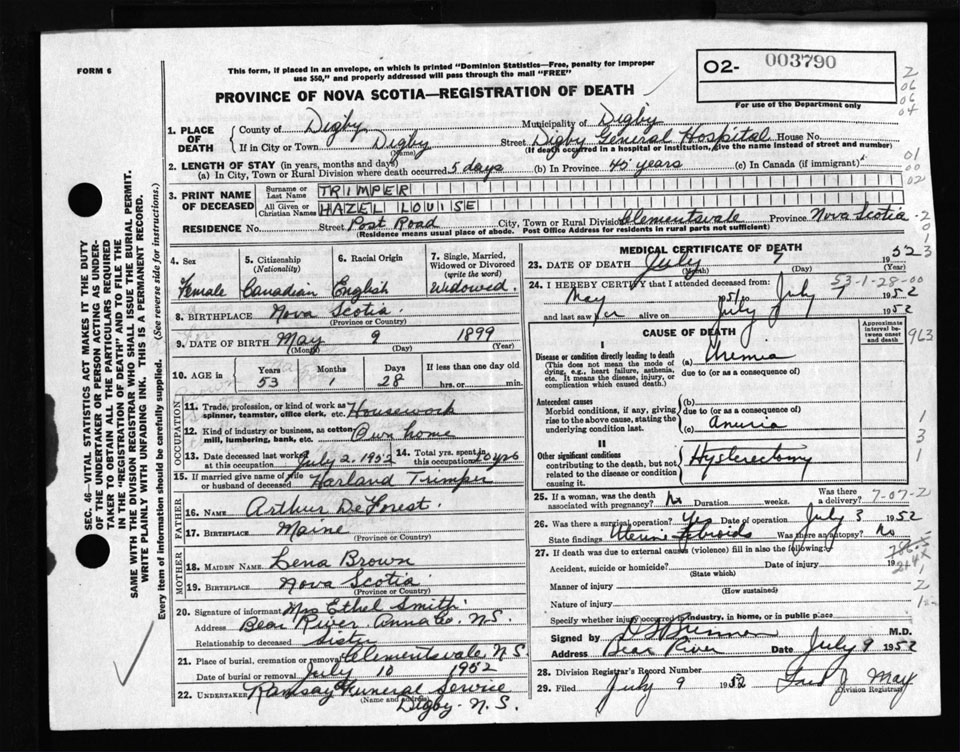 FORM 6
This form, if placed in an envelope, on which is printed "Dominion Statistics—Free, penalty for improper
use $50," and properly addressed will pass through the mail "FREE"
O2- 003790
For use of the Department only
PROVINCE OF NOVA SCOTIA—REGISTRATION OF DEATH
2
06
06
04
1. PLACE OF DEATH
County of Digby Municipality of Digby
If in City or Town Digby Street Digby General Hospital House No.
(Name) (If death occurred in a hospital or institution, give the name instead of street and number)
2. LENGTH OF STAY (in years, months and days)
(a) In City, Town or Rural Division where death occurred 5 days (b) In Province 45 years (c) In Canada (if immigrant)
01
00
02
3. PRINT NAME OF DECEASED
Surname or Last Name TRIMPER
All Given or Christian Names HAZEL LOUISE
RESIDENCE No. Street Post Road City, Town or Rural Division Clementsvale Province Nova Scotia
(Residence means usual place of abode. Post Office Address for residents in rural parts not sufficient)
4. Sex
Female
5. Citizenship
(Nationality)
Canadian
6. Racial Origin
English
7. Single, Married,
Widowed or Divorced
(write the word)
Widowed
8. BIRTHPLACE Nova Scotia
(Province or Country)
9. DATE OF BIRTH May 9 1899
(Month) (Day) (Year)
10. AGE in Years Months Days If less than one day old
53 1 28 hrs. or min.
OCCUPATION
11. Trade, profession, or kind of work as
spinner, teamster, office clerk, etc. Housework
12. Kind of industry or business, as cotton
mill, lumbering, bank, etc. Own home
13. Date deceased last worked
at this occupation July 2, 1952
14. Total yrs. spent in
this occupation yrs
15. If married give name of wife
or husband of deceased Harland Trimper
FATHER
16. NAME Arthur DeForest
17. BIRTHPLACE Maine
(Province or Country)
MOTHER
18. MAIDEN NAME Lena Brown
19. BIRTHPLACE Nova Scotia
(Province or Country)
20. Signature of informant Mrs Ethel Smith
Address Bear River Anna Co. N.S.
Relationship to deceased Sister
21. Place of burial, cremation or removal Clementsvale N.S.
Date of burial or removal July 10 1952
22. UNDERTAKER Ramsay Funeral Service
(Name and address) Digby N.S.
MEDICAL CERTIFICATE OF DEATH
23. DATE OF DEATH July 7 1952
(Month) (Day) (Year)
24. I HEREBY CERTIFY that I attended deceased from:
53-1-28-00
May 1951 to July 7 1952
and last saw her alive on July 1952
CAUSE OF DEATH
Approximate
interval between
onset
and death
963
I
Disease or condition directly leading to death
(This does not mean the mode of
dying, e.g., heart failure, asthenia,
etc. It means the disease, injury, or
complication which caused death.)
(a) Uremia
due to (or as a consequence of)
Antecedent causes
Morbid conditions, if any, giving
rise to the above cause, stating the
underlying condition last.
(b)
due to (or as a consequence of)
(c) Anuria
II
Other significant conditions
contributing to the death, but not
related to the disease or condition
causing it.
Hysterectomy
1
3
1
25. If a woman, was the death
associated with pregnancy? No Duration weeks. Was there
a delivery?
7-07-2
26. Was there a surgical operation? Yes Date of operation July 3 1952
State findings Uterine Fibroids Was there an autopsy? No
27. If death was due to external causes (violence) fill in also the following:
Accident, suicide or homicide? Date of injury 19
(State which)
Manner of injury
(How sustained)
Nature of injury
Specify whether injury occurred in industry, in home, or in public place
Signed by M.D.
Address Bear River July 9 1952
28. Division Registrar's Record Number
29. Filed July 9 1952
Division Registrar
SEC. 46—VITAL STATISTICS ACT MAKES IT THE DUTY
OF THE UNDERTAKER OR PERSON ACTING AS UNDER-
TAKER TO OBTAIN ALL THE PARTICULARS REQUIRED
IN THE "REGISTRATION OF DEATH" AND TO FILE THE
SAME WITH THE DIVISION REGISTRAR WHO SHALL ISSUE THE BURIAL PERMIT.
WRITE PLAINLY WITH UNFADING INK. THIS IS A PERMANENT RECORD.
Every item of information should be carefully supplied. (See reverse side for instructions.)